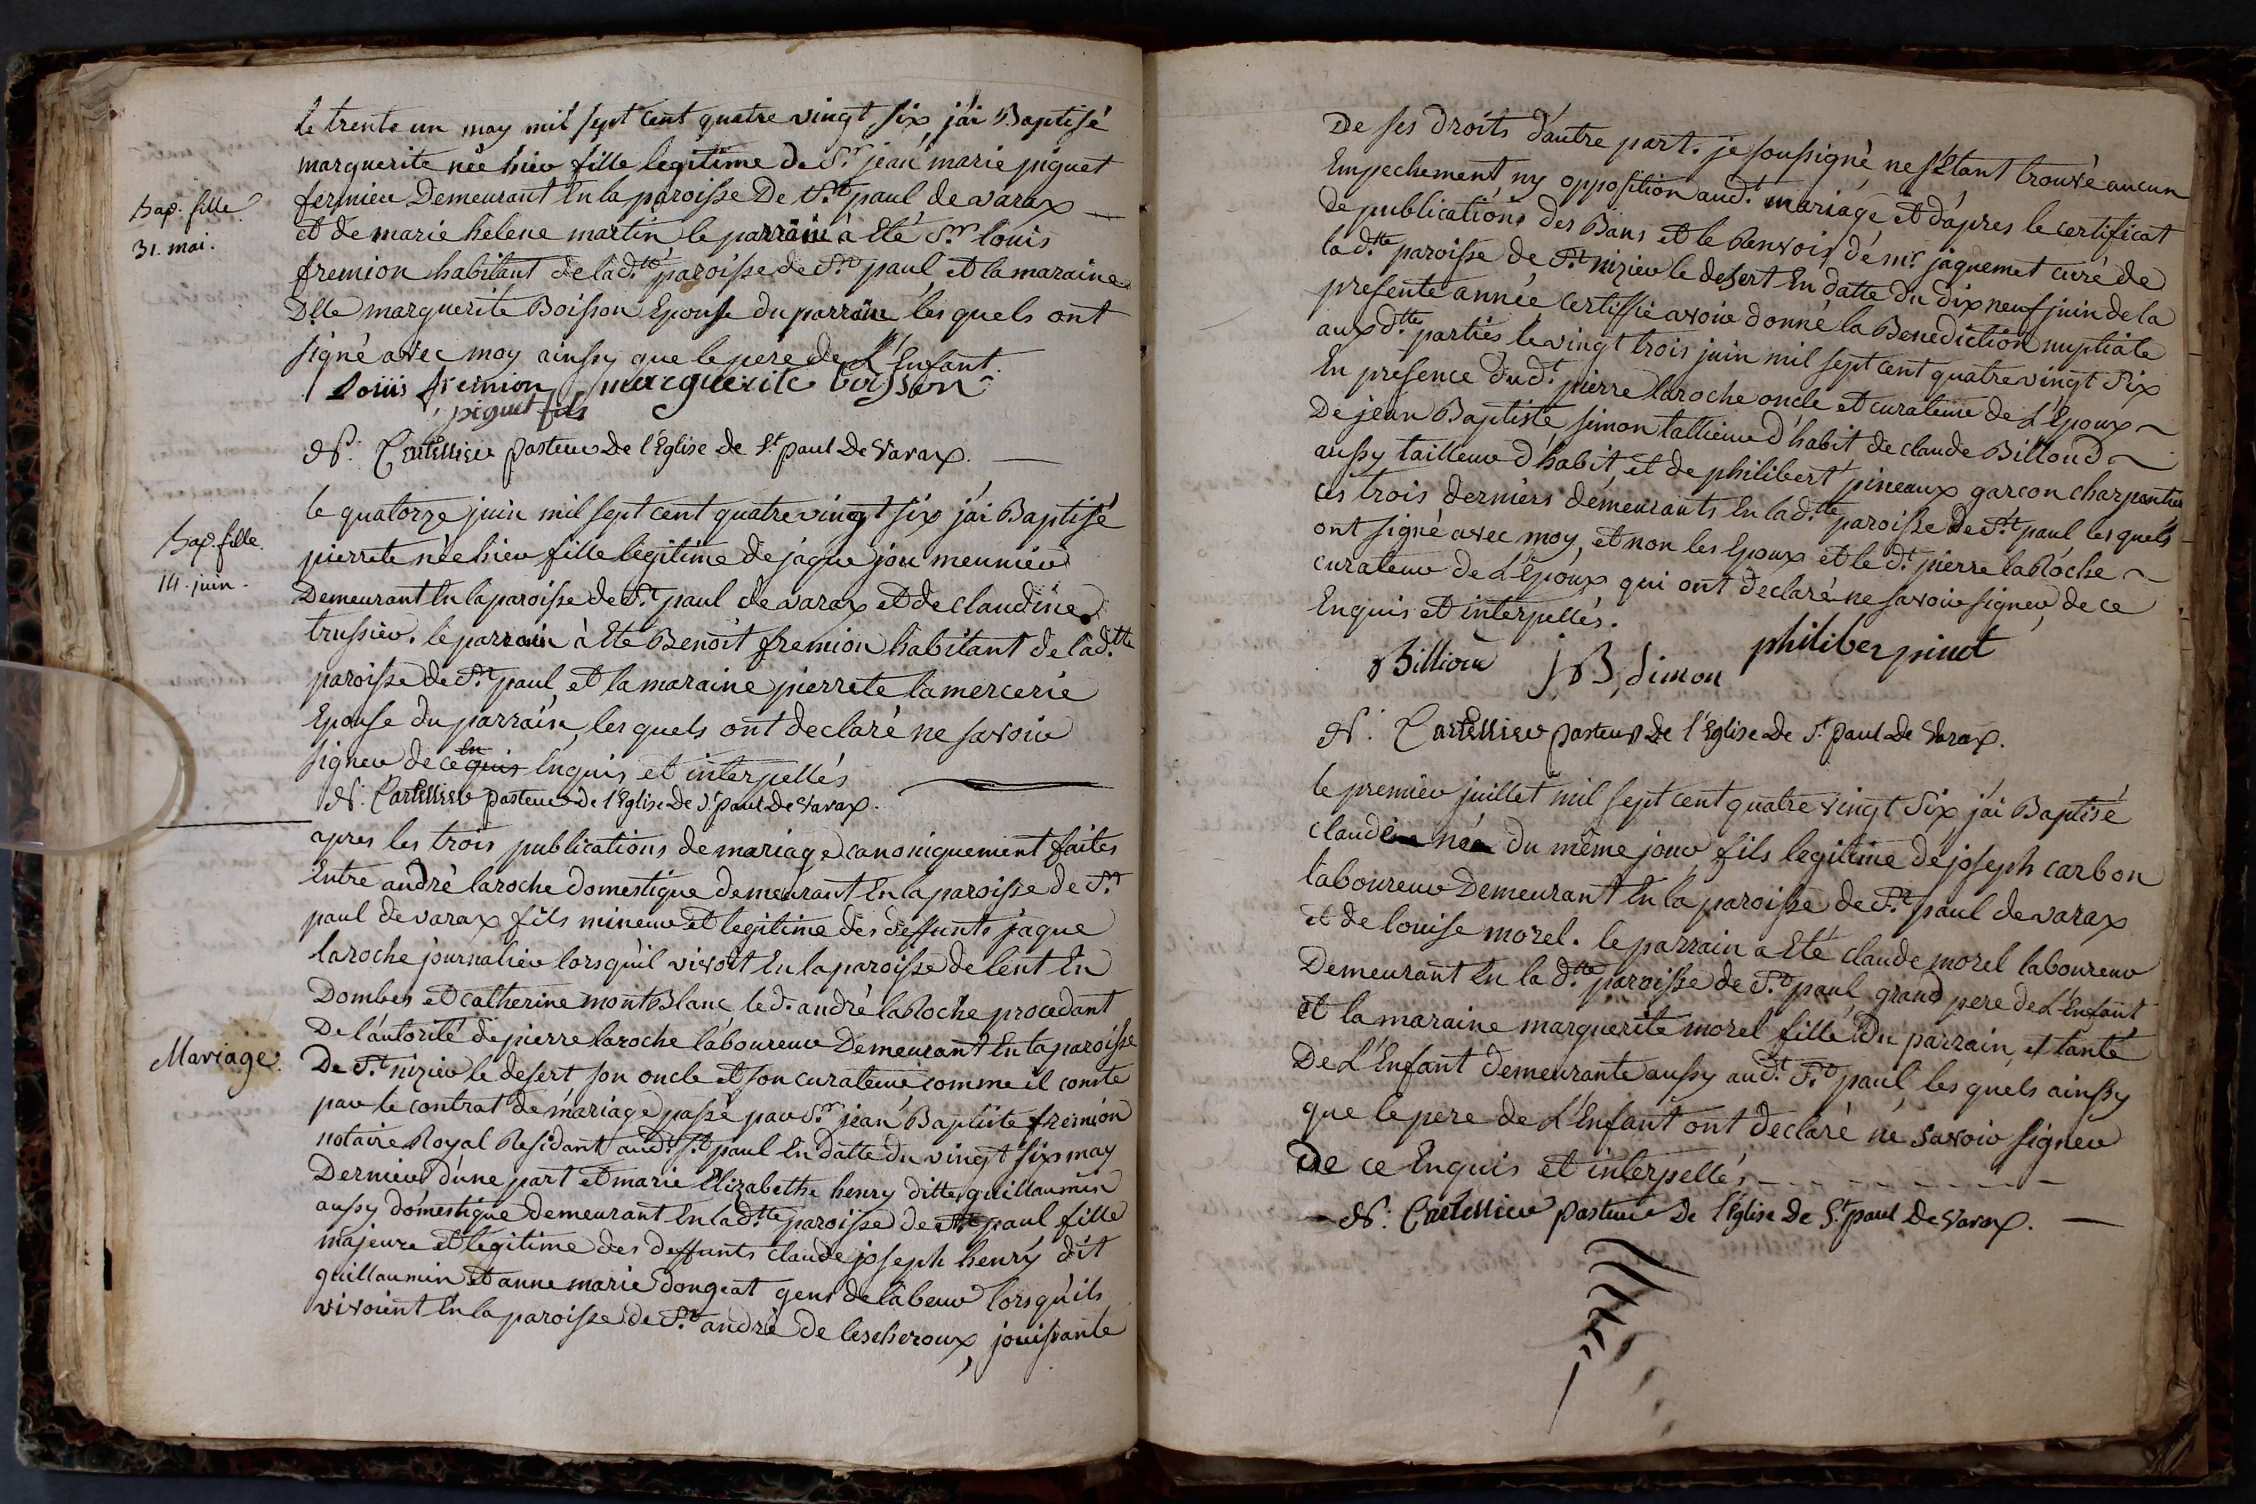 le trente un may mil sept cent quatre vingt six j'ai Baptisé
marguerite née hier fille legitime de Sr. jean marie piguet
fermier Demeurant En la paroisse De St. paul de varax
Bap. fille.
31. mai.
et de marie helene martin le parrain à Eté Sr. louis
fremion habitant de lad.tte paroisse de St. paul et la maraine
Dlle marguerite Boisson Epouse du parrain les quels ont
signé avec moy ainssy que le pere de L'Enfant.
Louis fremion marguerite boisson
piguet fils
N. Cartellier pasteur De l'Eglise de St. paul De Varax.
le quatorze juin mil sept cent quatre vingt six j'ai Baptisé
Bap. fille.
14. juin.
pierrete née hier fille legitime de jaque jou meunier
Demeurant En la paroisse de St. paul de varax et de claudine
trussier. le parrain à Eté Benoit fremion habitant de lad.tte
paroisse de St. paul et la maraine pierrete lamercerie
Epouse du parrain, les quels ont declaré ne savoir
signer de ce Enquis et interpellés
N. Cartellier pasteur de l'Eglise de St. paul de Varax.
apres les trois publications de mariage canoniquement faites
Entre andré laroche domestique demeurant En la paroisse de St.
paul de varax fils mineur et legitime des deffunts jaque
laroche journalier lorsqu'il vivoit En la paroisse de lent En
Dombes et catherine montBlanc, led. andré laRoche procedant
De l'autorité de pierre laroche laboureur Demeurant En la paroisse
Mariage.
De St. nizier le desert son oncle et son curateur comme il conste
par le contrat de mariage passé par Sr. jean Baptiste fremion
notaire Royal Residant aud. St. paul En datte du vingt six may
Dernier d'une part et marie Elizabethe henry ditte guillaumin
aussy domestique demeurant En lad.tte paroisse de St. paul fille
majeure et legitime des deffunts claude joseph henry dit
guillaumin et anne marie dongeat gens de labeur lorsqu'ils
vivoient En la paroisse de St. andré de lescheroux, jouissante
De ses droits d'autre part. je soussigné ne s'Etant trouvé aucun
Empechement ny opposition aud.t mariage et d'apres le certificat
de publications des Bans et le Renvois de mr. jaquemet curé de
la d.tte paroisse de St. nizier le desert En datte du dix neuf juin de la
presente année certiffie avoir donné la Benediction nuptiale
aux d.ttes parties le vingt trois juin mil sept cent quatre vingt Six
En presence dud.t pierre laroche oncle et curateur de L'Epoux
De jean Baptiste simon tallieur d'habit, de claude Billoud
aussy tailleur d'habit, et de philibert pineaux garcon charpantier
ces trois derniers demeurants En lad.tte paroisse de St. paul les quels
ont signé avec moy, et non les Epoux et le d.t pierre laRoche
curateur de L'Epoux qui ont declaré ne savoir signer, de ce
Enquis et interpellés.
Billiou J, B, Simon philiber pinot
N. Cartellier pasteur de l'Eglise de St. paul de Varax.
le premier juillet mil sept cent quatre vingt Six j'ai Baptisé
claude né du même jour fils legitime de joseph carbon
laboureur Demeurant En la paroisse de St. paul de varax
et de louise morel. le parrain a Eté claude morel laboureur
Demeurant En la d.tte paroisse de St. paul grand pere de L'Enfant
et la maraine marguerite morel fille du parrain, et tante
De L'Enfant demeurante aussy aud.t St. paul, les quels ainssy
que le pere de L'Enfant ont declaré ne savoir signer
De ce Enquis et interpellés
N. Cartellier pasteur De l'Eglise De St. paul De Varax.